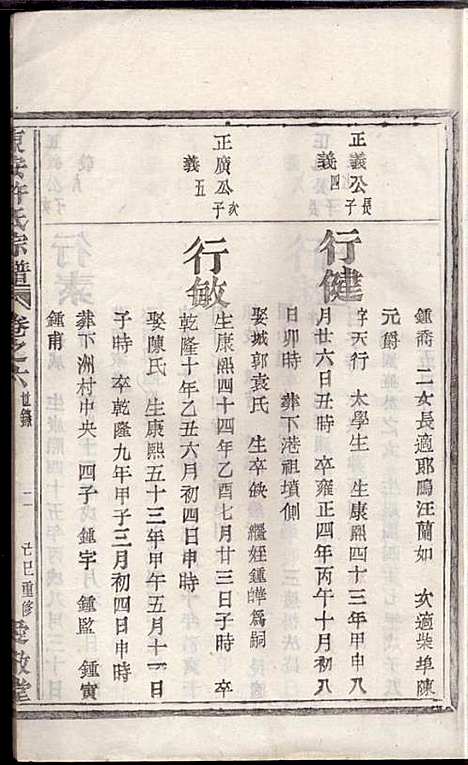 鍾喬 二女長適耶鵰汪蘭如 次適柴埠陳
元爵
正義公長子
義四
行健
字天行 太學生 生康熙四十三年甲申八
月廿六日丑時 卒雍正四年丙午十月初八
日卯時 葬下港祖墳側
娶城郭袁氏 生卒缺 繼姪鍾皥爲嗣
正廣公次子
義五
行敏
生康熙四十四年乙酉七月廿三日子時 卒
乾隆十年乙丑六月初四日申時
娶陳氏 生康熙五十三年甲午五月十一日
子時 卒乾隆九年甲子三月初四日申時
葬下洲村中央 四子 鍾宇 鍾監 鍾實
鍾甫
東安許氏宗譜 卷之六 世錄 二 己巳重修 愛敬堂